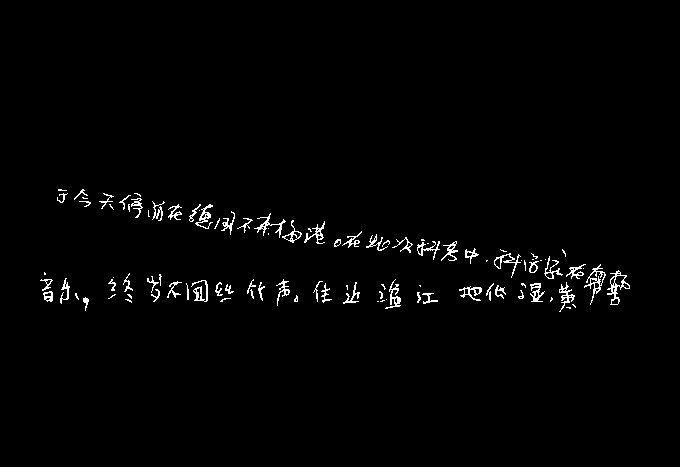 于今天停泊在德国不来梅港。在此次科考中，科学家在
音乐，终岁不闻丝竹声。住近湓江地低湿，黄芦苦